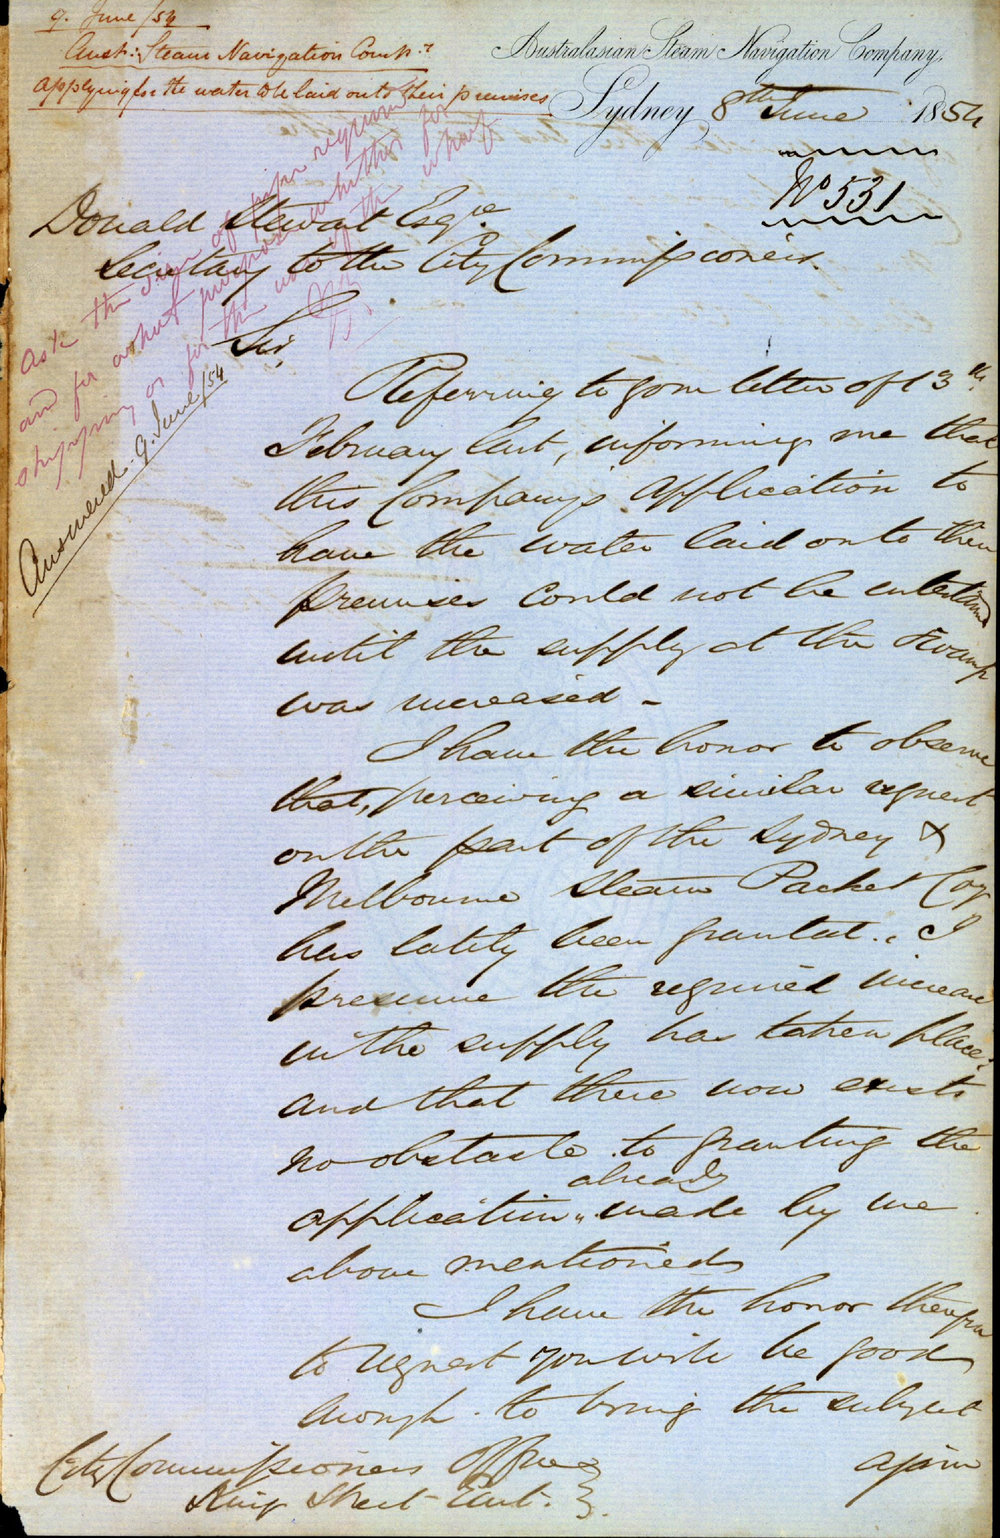 9. June /54
Aust: Steam Navigation Comp.y
applying for the water to be laid on to their premises
Australasian Steam Navigation Company,
Sydney 8th June 1854
No 531
ask the size of pipe required
and for what purpose whether for
shipping or for the use of the wharf
Answered. 9. June /54
Donald Stewart Esqre
Secretary to the City Commissioners.
Sir,
Referring to your letter of 13th
February last, informing me that
this Company's application to
have the water laid on to their
premises could not be entertained
until the supply at the Swamp
was increased -
I have the honor to observe
that, perceiving a similar request
on the part of the Sydney &
Melbourne Steam Packet Coy
has lately been granted. I
presume the required increase
in the supply has taken place;
and that there now exists
no obstacle to granting the
already
application made by me
above mentioned
I have the honor therefore
to request you will be good
enough to bring the subject
again
City Commissioners Office
King Street East.